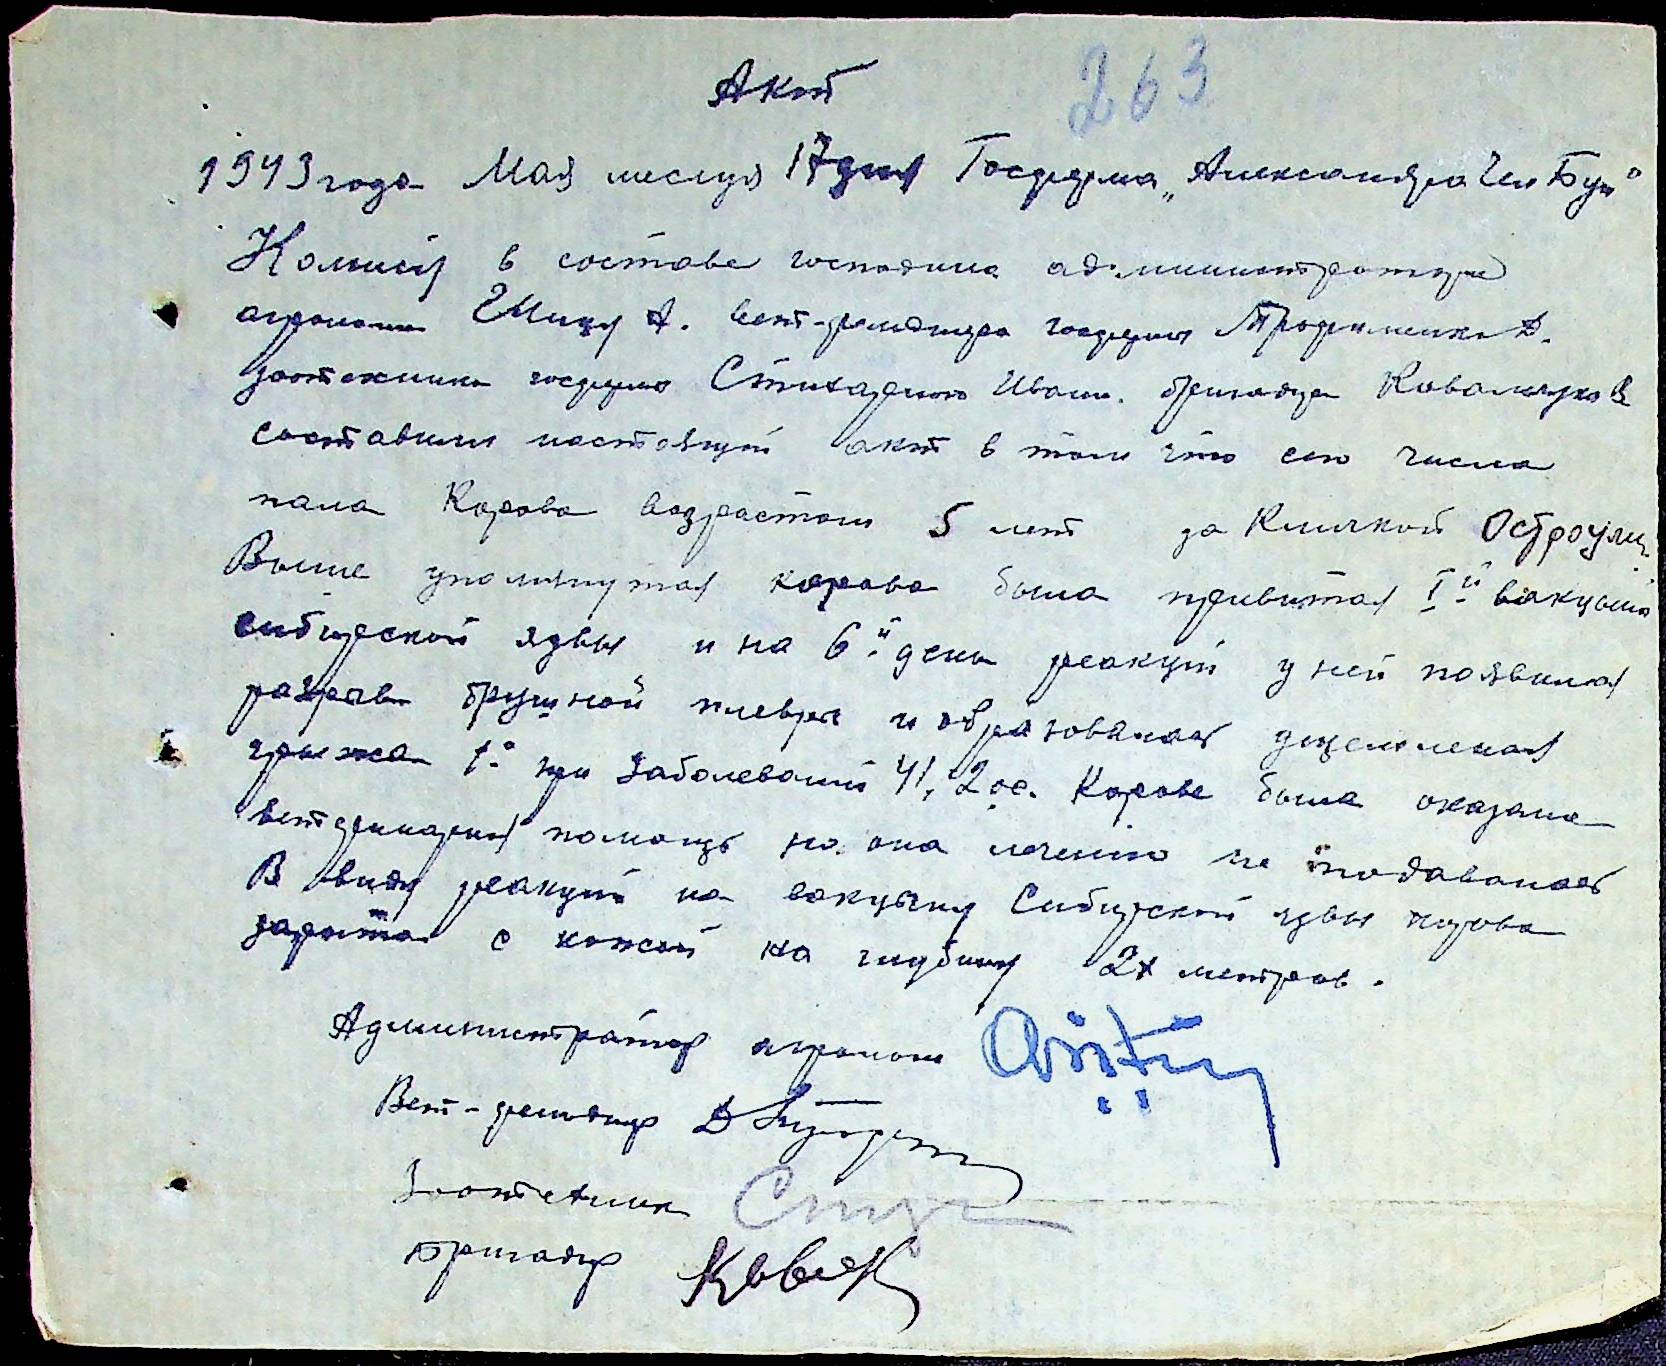 Акт
263
1943 года Мая месяца 17 дня Госферма „Александра Чел Бун"
Комисия в составе господина администратора
агронома А. вет-фельдшера госфермы Трофименко Д.
зоотехника госфермы Стихарного Ивана. бригадира Ковальчука В
составили настоящий акт в том что сего числа
пала Корова возрастом 5 лет за Кличкой
Выше упомянутая корова была привитая I-й вакцыной
сибирской язвы и на 6-й день реакции у ней появился
разрыв брушной плевры и образовалась ущемленая
грыжа t° при заболевании 41,2 ос. Корове была оказана
ветеринарная помощь но она лечению не подавалась
В виду реакции на вакцыну Сибирской язвы корова
зарыта с кожей на глубину 2х метров.
Администратор агроном
Вет-фельдшер Д
Зоотехник
Бригадир